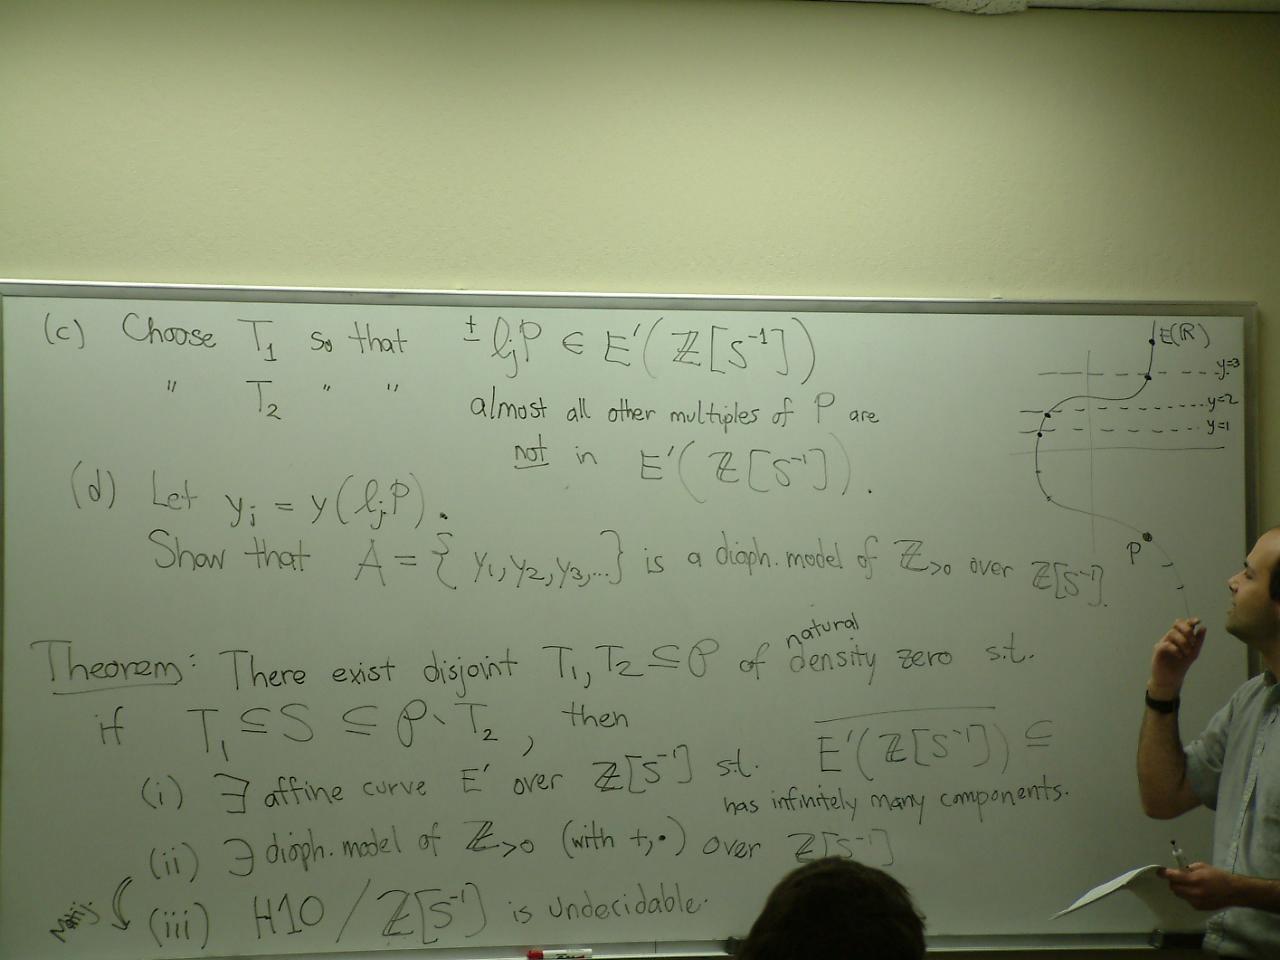 (c) Choose T₁ so that ± lⱼP ∈ E′(ℤ[S⁻¹])
" T₂ " " almost all other multiples of P are
not in E′(ℤ[S⁻¹]).
(d) Let yⱼ = y(lⱼP).
Show that A = {y₁, y₂, y₃, ...} is a dioph. model of ℤ>0 over ℤ[S⁻¹].
Theorem: There exist disjoint T₁, T₂ ⊆ 𝒫 of natural density zero s.t.
if T₁ ⊆ S ⊆ 𝒫 \ T₂, then
(i) ∃ affine curve E′ over ℤ[S⁻¹] s.t. E̅′̅(̅ℤ̅[̅S̅⁻̅¹̅]̅)̅ ⊆
has infinitely many components.
(ii) ∃ dioph. model of ℤ>0 (with +, ·) over ℤ[S⁻¹]
Matij. (iii) H10 / ℤ[S⁻¹] is undecidable.
E(ℝ)
y=3
y=2
y=1
P